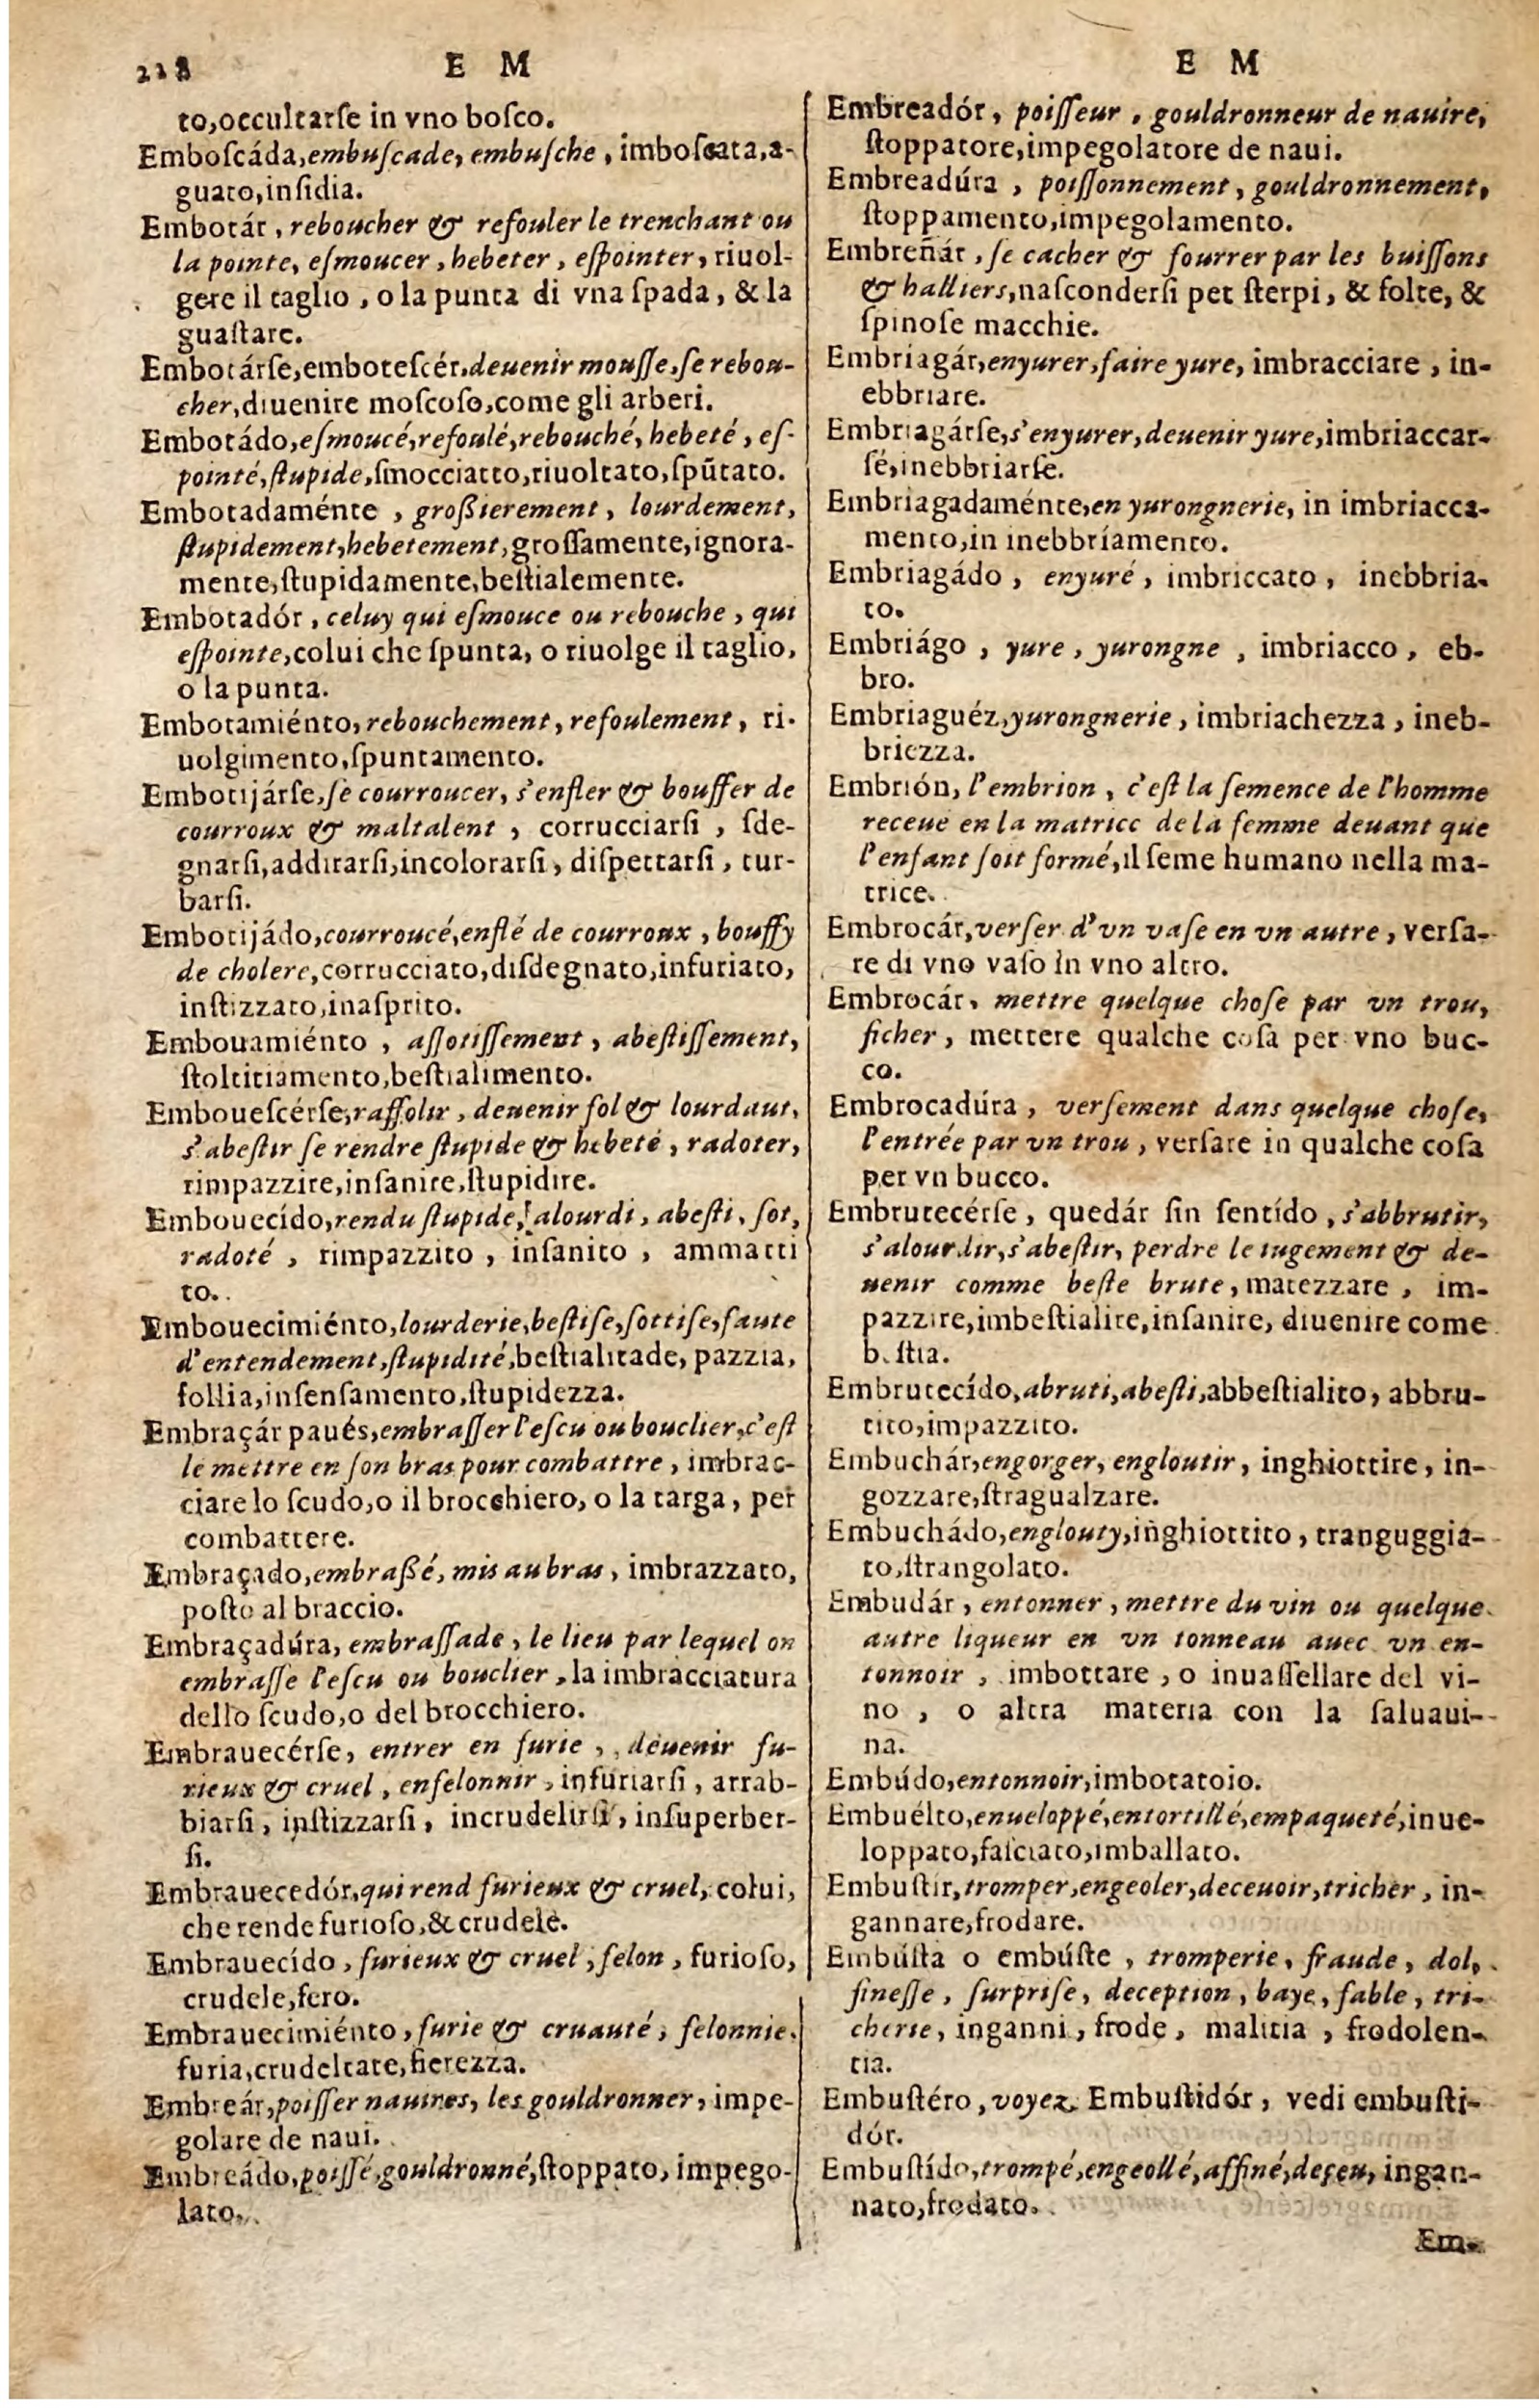 228
E M
to,occultarſe in vno boſco.
Emboſcáda,embuſcade, embuſche, imboſcata,a-
guato,inſidia.
Embotár, reboucher & refouler le trenchant ou
la pointe, eſmoucer, hebeter, eſpointer, riuol-
gere il taglio, o la punta di vna ſpada, & la
guaſtare.
Embotárſe,emboteſcér,deuenir mouſſe,ſe rebou-
cher,diuenire moſcoſo,come gli arberi.
Embotádo,eſmoucé,refoulé,rebouché, hebeté, eſ-
pointé,ſtupide,ſmocciatto,riuoltato,ſpũtato.
Embotadaménte, großierement, lourdement,
ſtupidement,hebetement,groſſamente,ignora-
mente,ſtupidamente,beſtialemente.
Embotadór, celuy qui eſmouce ou rebouche, qui
eſpointe,colui che ſpunta, o riuolge il taglio,
o la punta.
Embotamiénto,rebouchement, refoulement, ri-
uolgimento,ſpuntamento.
Embotijárſe,ſe courroucer, s'enfler & bouffer de
courroux & maltalent, corrucciarſi, ſde-
gnarſi,addirarſi,incolorarſi, diſpettarſi, tur-
barſi.
Embotijádo,courroucé,enflé de courroux, bouffy
de cholere,corrucciato,diſdegnato,infuriato,
inſtizzato,inaſprito.
Embouamiénto, aſſotiſſement, abeſtiſſement,
ſtoltitiamento,beſtialimento.
Embouеſcérſe,raſſolir, deuenir fol & lourdaut,
s'abeſtir ſe rendre ſtupide & hebeté, radoter,
rimpazzire,inſanire,ſtupidire.
Embouecído,rendu ſtupide, alourdi, abeſti, ſot,
radoté, rimpazzito, inſanito, ammatti
to.
Embouecimiénto,lourderie,beſtiſe,ſottiſe,faute
d'entendement,ſtupidité,beſtialitade, pazzia,
follia,inſenſamento,ſtupidezza.
Embraçár paués,embraſſer l'eſcu ou bouclier,c'eſt
le mettre en ſon bras pour combattre, imbrac-
ciare lo ſcudo,o il brocchiero, o la targa, per
combattere.
Embraçado,embraßé, mis au bras, imbrazzato,
poſto al braccio.
Embraçadúra, embraſſade, le lieu par lequel on
embraſſe l'eſcu ou bouclier, la imbracciatura
dello ſcudo,o del brocchiero.
Embrauecérſe, entrer en furie, deuenir fu-
rieux & cruel, enfelonnir, infuriarſi, arrab-
biarſi, inſtizzarſi, incrudelirſi, inſuperber-
ſi.
Embrauecedór,qui rend furieux & cruel, colui,
che rende furioſo,& crudele.
Embrauecído, furieux & cruel, felon, furioſo,
crudele,fero.
Embrauecimiénto, furie & cruauté, felonnie,
furia,crudeltate,fierezza.
Embreár,poiſſer nauires, les gouldronner, impe-
golare de naui.
Embreádo,poiſſé,gouldronné,ſtoppato, impego-
lato.
E M
Embreadór, poiſſeur, gouldronneur de nauire,
ſtoppatore,impegolatore de naui.
Embreadúra, poiſſonnement, gouldronnement,
ſtoppamento,impegolamento.
Embreñár, ſe cacher & fourrer par les buiſſons
& halliers,naſconderſi pet ſterpi, & folte, &
ſpinoſe macchie.
Embriagár,enyurer,faire yure, imbracciare, in-
ebbriare.
Embriagárſe,s'enyurer,deuenir yure,imbriaccar-
ſé,inebbriarſe.
Embriagadaménte,en yurongnerie, in imbriacca-
mento,in inebbríamento.
Embriagádo, enyuré, imbriccato, inebbria-
to.
Embriágo, yure, yurongne, imbriacco, eb-
bro.
Embriaguéz,yurongnerie, imbriachezza, ineb-
briezza.
Embrión, l'embrion, c'eſt la ſemence de l'homme
receue en la matrice de la femme deuant que
l'enfant ſoit formé,il ſeme humano nella ma-
trice.
Embrocár,verſer d'vn vaſe en vn autre, verſa-
re di vno vaſo in vno altro.
Embrocár, mettre quelque choſe par vn trou,
ficher, mettere qualche coſa per vno buc-
co.
Embrocadúra, verſement dans quelque choſe,
l'entrée par vn trou, verſare in qualche coſa
per vn bucco.
Embrutecérſe, quedár ſin ſentído, s'abbrutir,
s'alourdir,s'abeſtir, perdre le iugement & de-
uenir comme beſte brute, matezzare, im-
pazzire,imbeſtialire,inſanire, diuenire come
b.ſtia.
Embrutecído,abruti,abeſti,abbeſtialito, abbru-
tito,impazzito.
Embuchár,engorger, engloutir, inghiottire, in-
gozzare,ſtragualzare.
Embuchádo,englouty,inghiottito, tranguggia-
to,ſtrangolato.
Embudár, entonner, mettre du vin ou quelque
autre liqueur en vn tonneau auec vn en-
tonnoir, imbottare, o inuaſſellare del vi-
no, o altra materia con la ſaluaui-
na.
Embúdo,entonnoir,imbotatoio.
Embuélto,enueloppé,entortillé,empaqueté,inue-
loppato,faſciato,imballato.
Embuſtir,tromper,engeoler,deceuoir,tricher, in-
gannare,frodare.
Embúſta o embúſte, tromperie, fraude, dol,
fineſſe, ſurpriſe, deception, baye, fable, tri-
cherie, inganni, frode, malitia, frodolen-
tia.
Embuſtéro, voyez Embuſtidór, vedi embuſti-
dór.
Embuſtído,trompé,engeollé,affiné,deçeu, ingan-
nato,frodato.
Em-